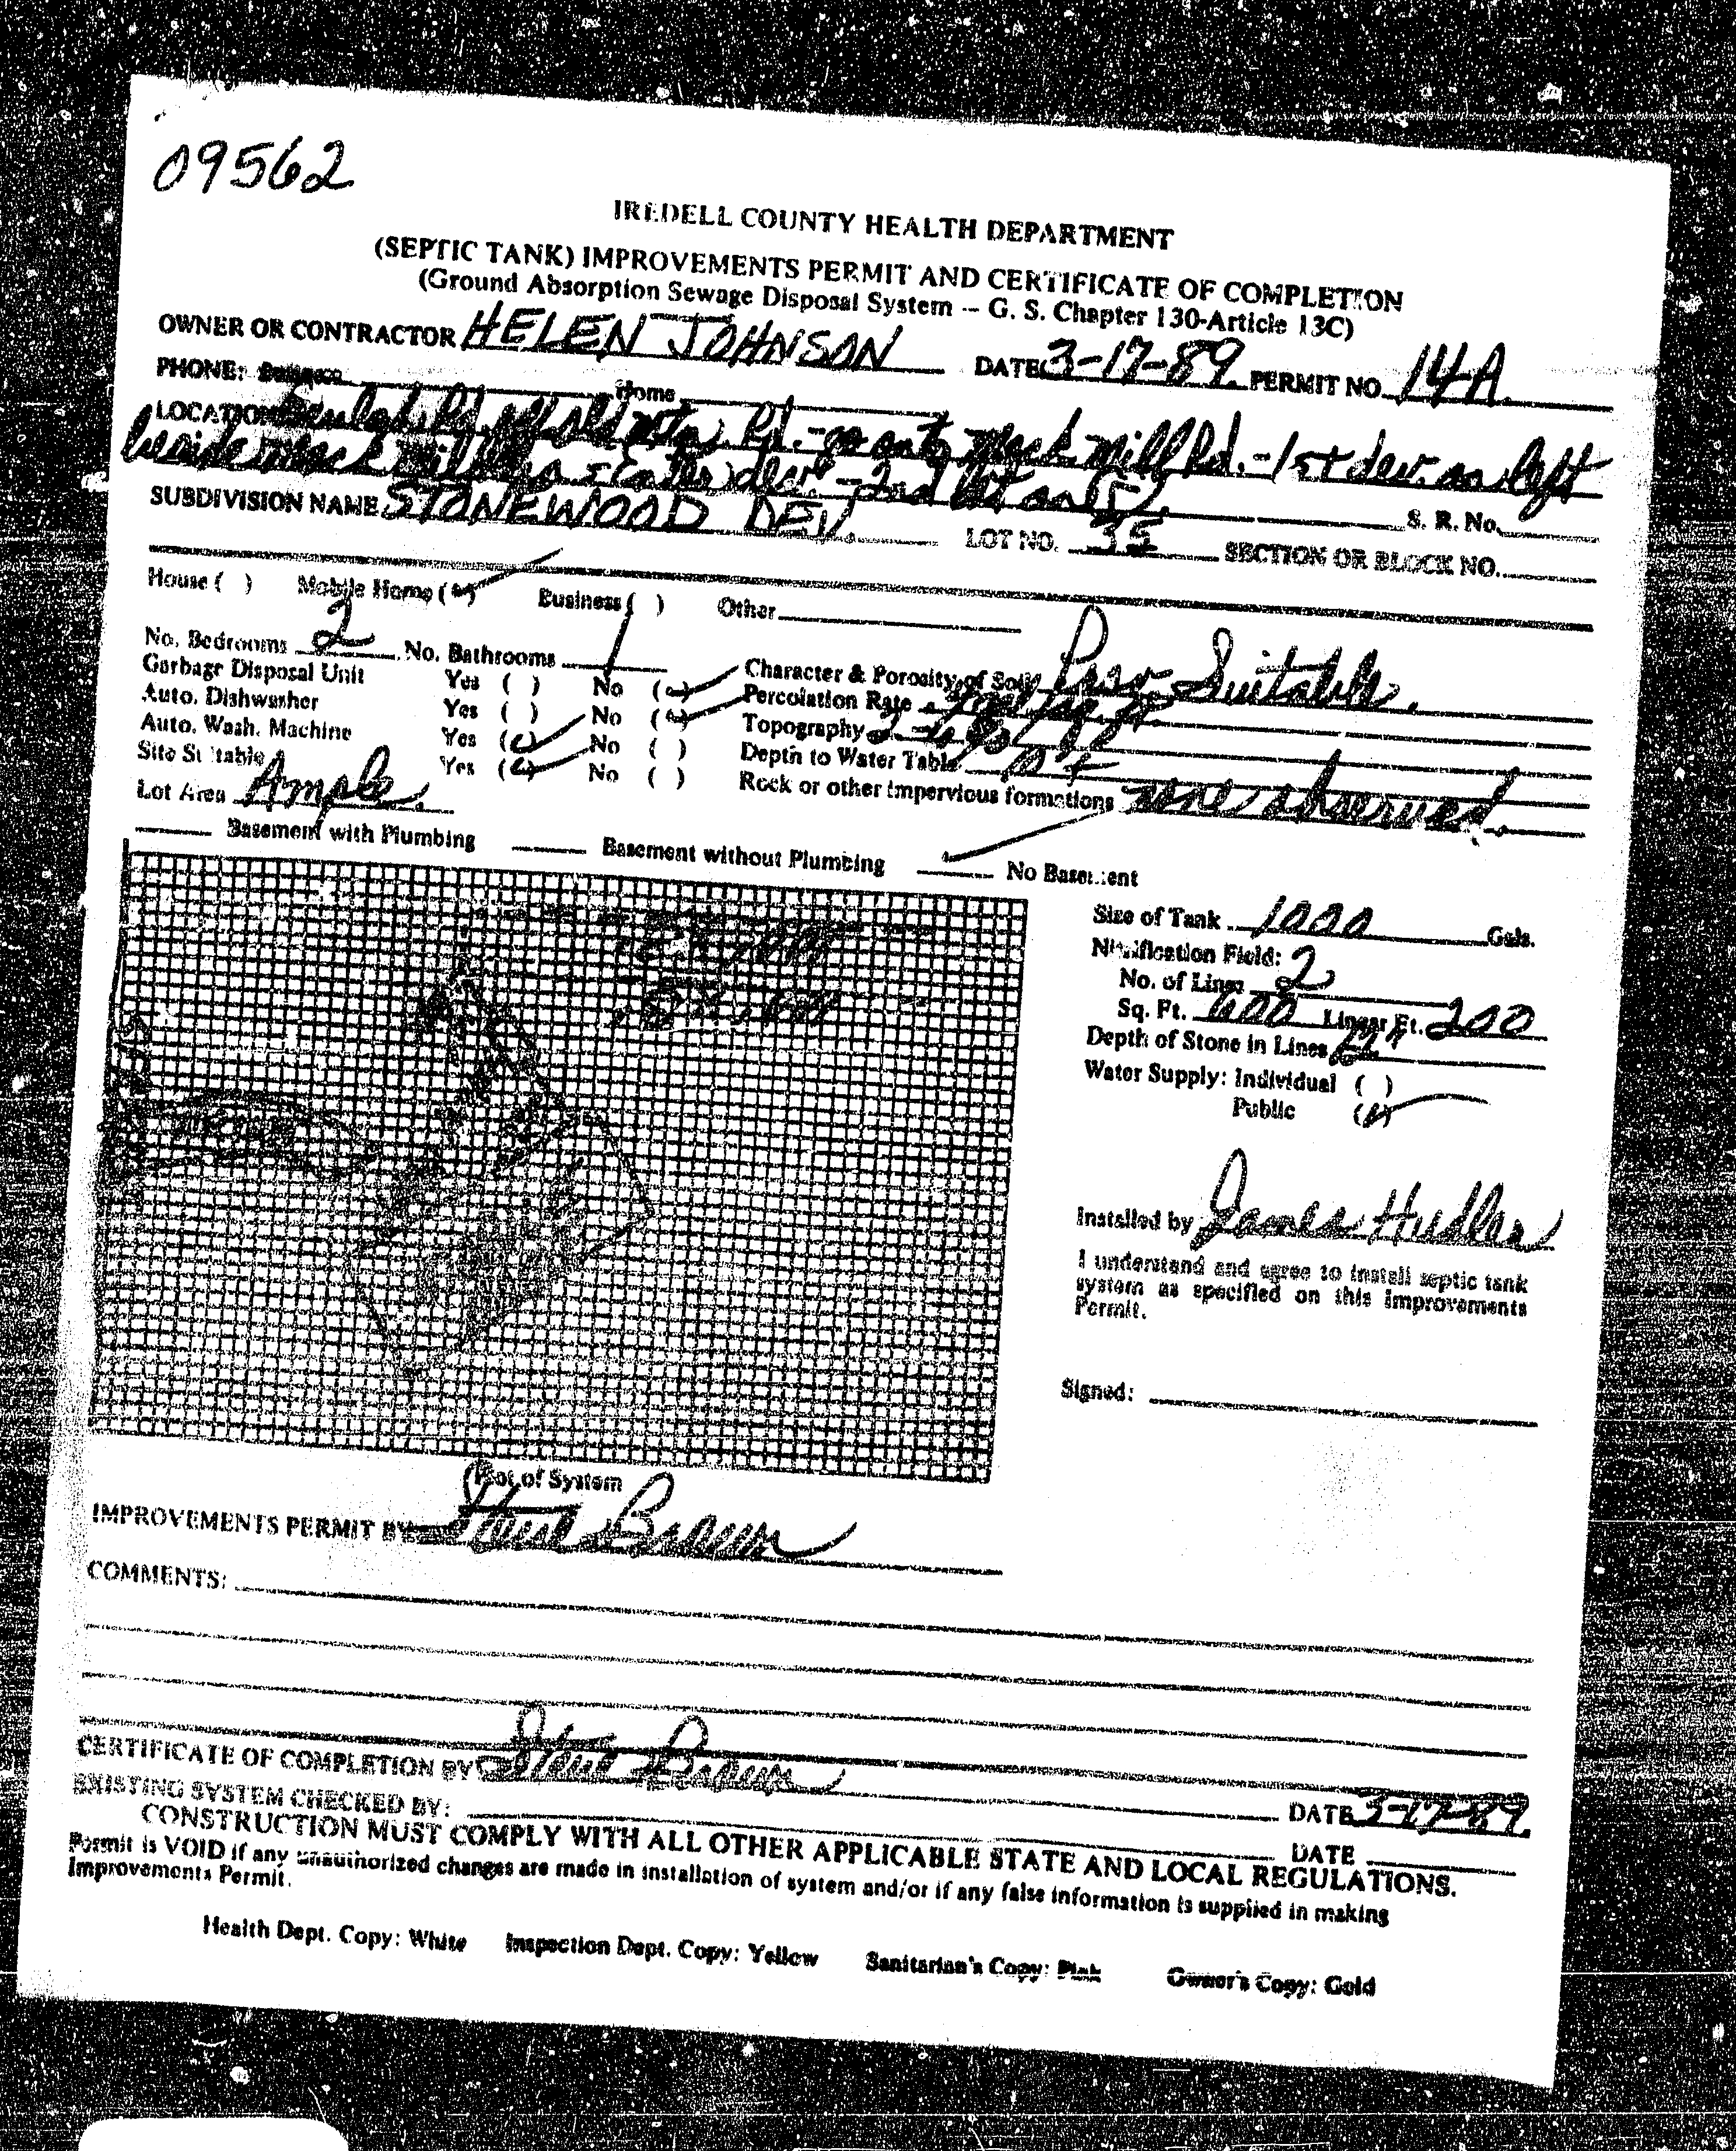 09562
IREDELL COUNTY HEALTH DEPARTMENT
(SEPTIC TANK) IMPROVEMENTS PERMIT AND CERTIFICATE OF COMPLETION
(Ground Absorption Sewage Disposal System -- G. S. Chapter 130-Article 13C)
OWNER OR CONTRACTOR HELEN JOHNSON DATE 3-17-89. PERMIT NO. 14A.
PHONE: Business Home
LOCATION Rd. off old Rd. - Mack Mill Rd. - 1st dev. on left
beside dev. - 2nd lot on
SUBDIVISION NAME STONEWOOD DEV. LOT NO. 35 S. R. No.
SECTION OR BLOCK NO.
House ( ) Mobile Home ( ) Business ( ) Other
No. Bedrooms 2 No. Bathrooms 1 Character & Porosity of Soil Prov Suitable.
Garbage Disposal Unit Yes ( ) No ( ) Percolation Rate
Auto. Dishwasher Yes ( ) No ( ) Topography
Auto. Wash. Machine Yes ( ) No ( ) Depth to Water Table
Site Suitable Yes ( ) No ( ) Rock or other impervious formations none observed.
Lot Area Ample.
Basement with Plumbing Basement without Plumbing No Basement
Size of Tank 1000 Gals.
Nitrification Field:
No. of Lines 2
Sq. Ft. 600 Linear Ft. 200
Depth of Stone in Lines 12"
Water Supply: Individual ( )
Public ( )
Installed by James Hudler
I understand and agree to install septic tank
system as specified on this Improvements
Permit.
Signed:
(Plot of System
IMPROVEMENTS PERMIT BY Steve Brown
COMMENTS:
CERTIFICATE OF COMPLETION BY Steve Brown DATE 3-17-89.
EXISTING SYSTEM CHECKED BY: DATE
CONSTRUCTION MUST COMPLY WITH ALL OTHER APPLICABLE STATE AND LOCAL REGULATIONS.
Permit is VOID if any unauthorized changes are made in installation of system and/or if any false information is supplied in making
Improvements Permit.
Health Dept. Copy: White Inspection Dept. Copy: Yellow Sanitarian's Copy: Pink Owner's Copy: Gold